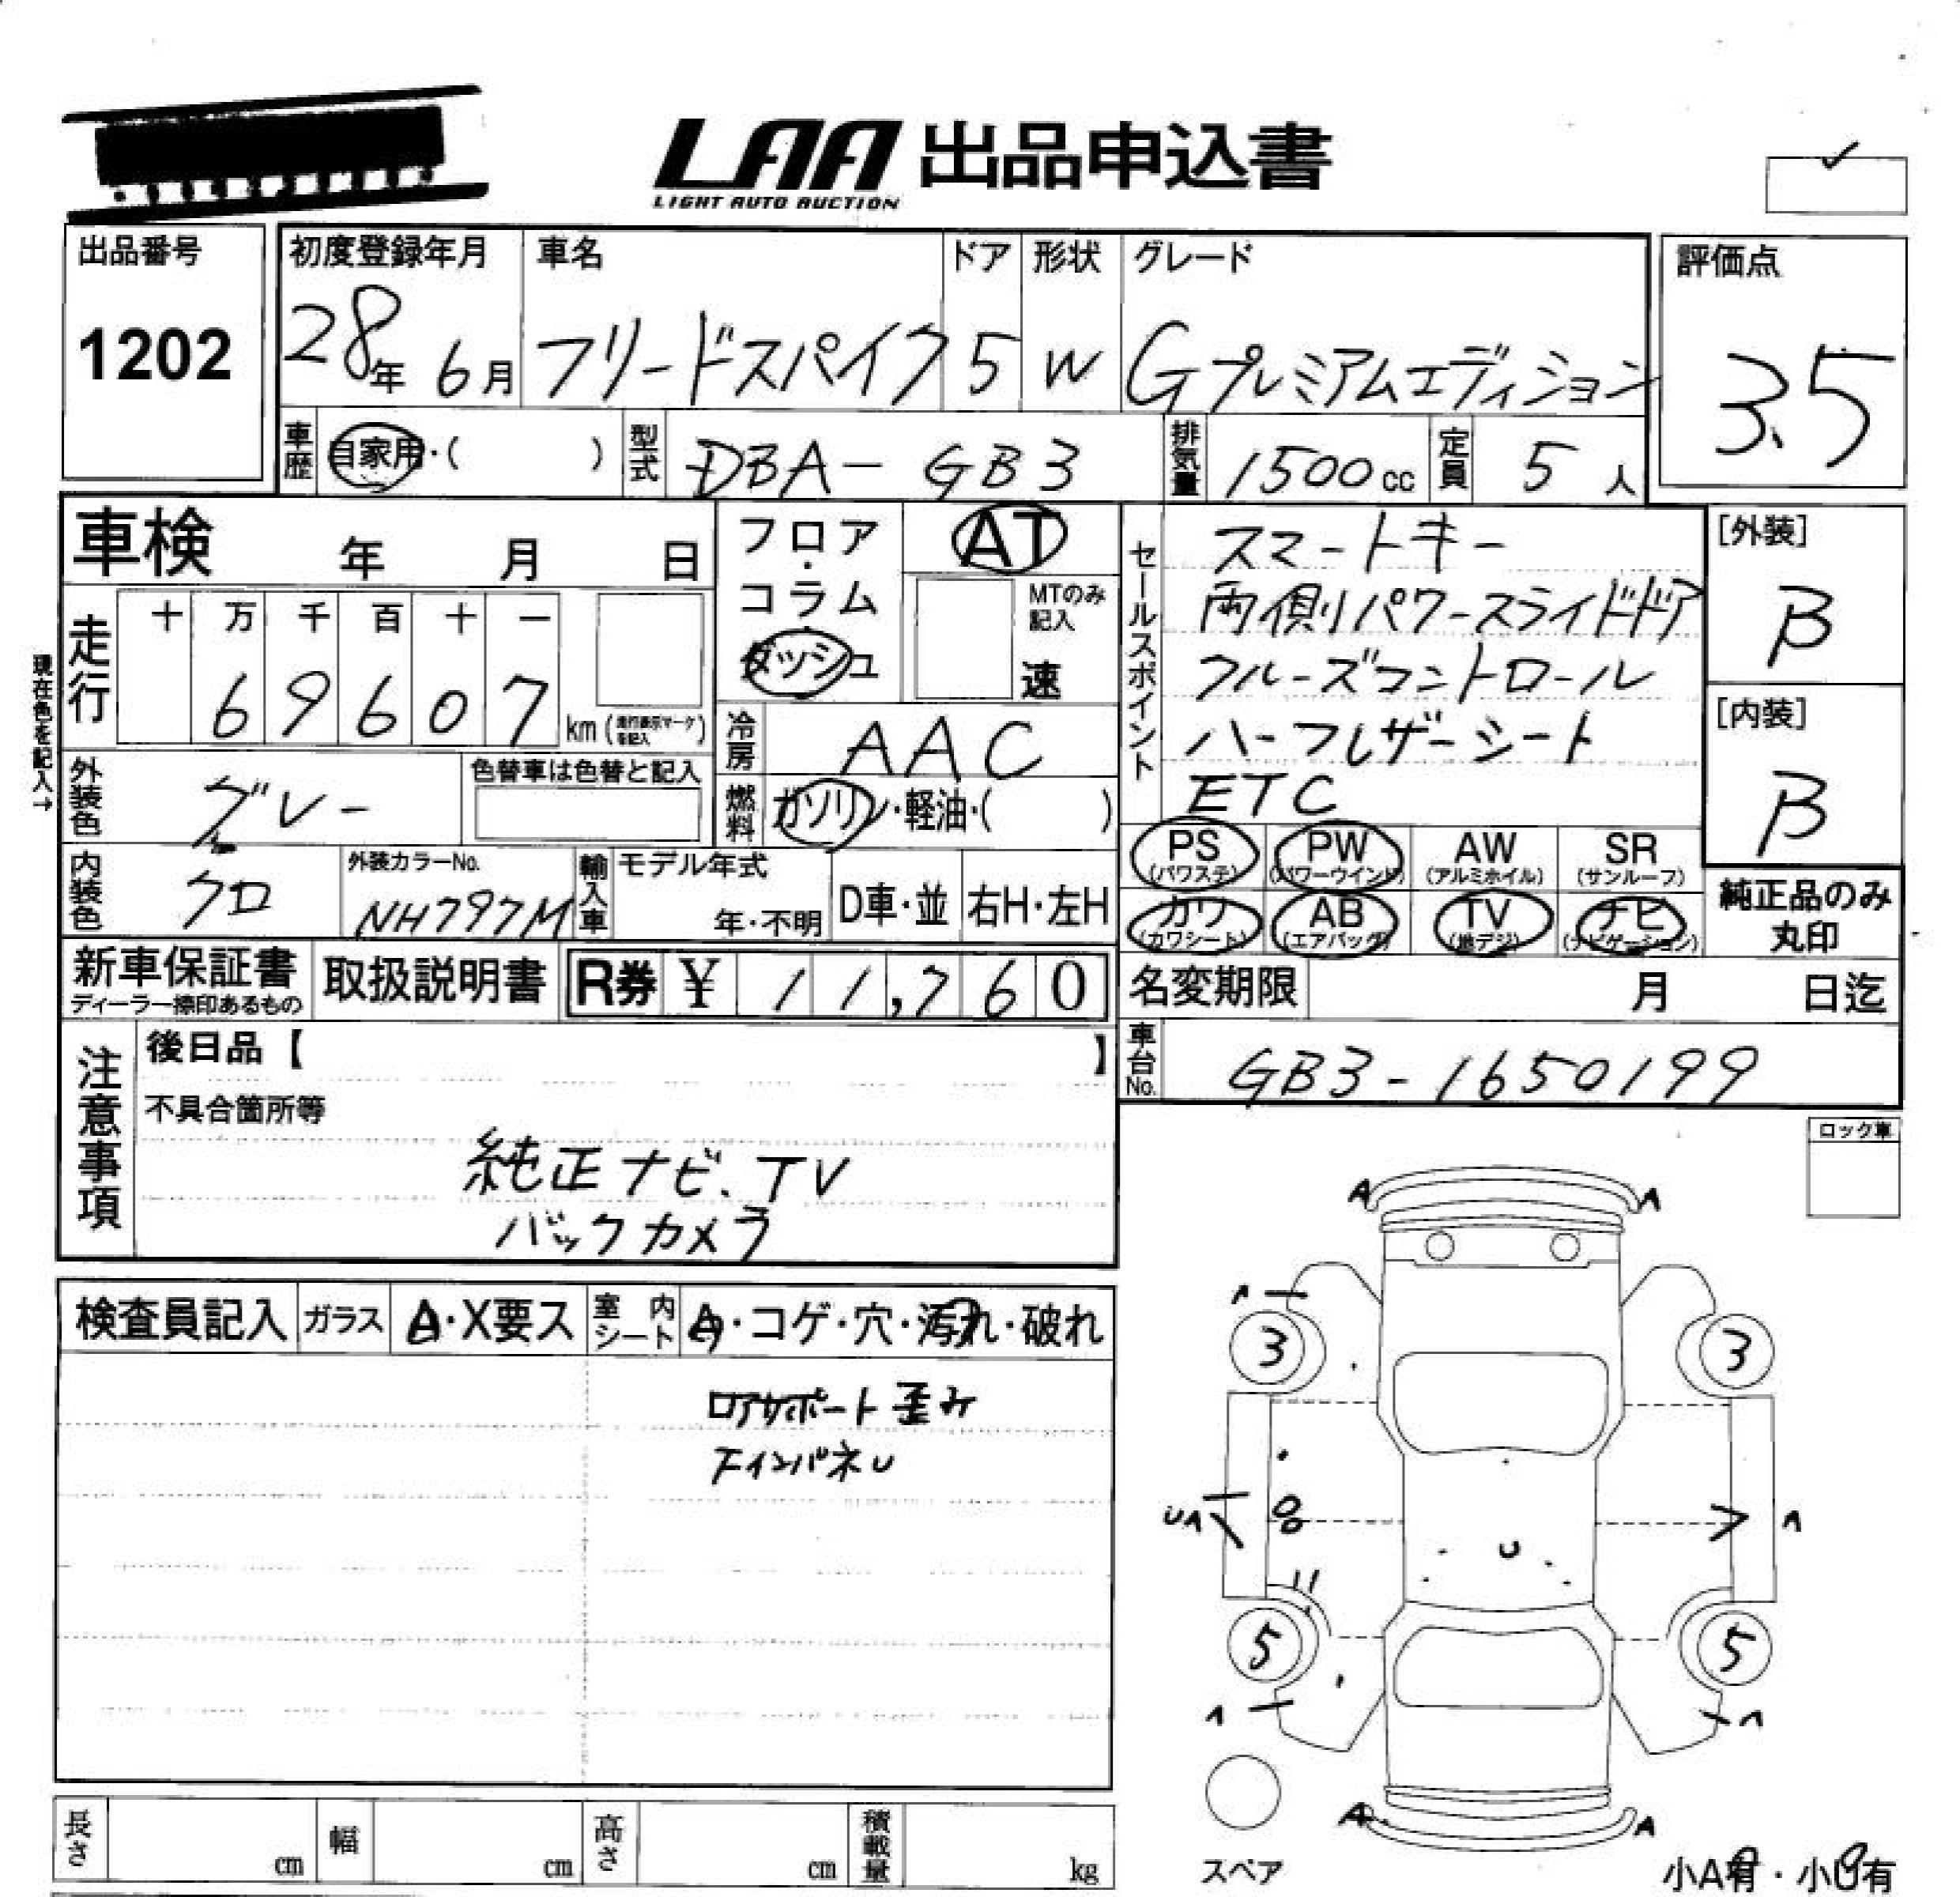 LAA 出品申込書
LIGHT AUTO AUCTION
出品番号
1202
初度登録年月
28年 6月
車名
フリードスパイク
ドア
5
形状
W
グレード
Gプレミアムエディション
評価点
3.5
車歴
自家用・( )
型式
DBA-GB3
排気量
1500cc
定員
5人
車検 年 月 日
フロア・コラム
ダッシュ
AT
MTのみ記入
速
セールスポイント
スマートキー
両側パワースライドドア
クルーズコントロール
ハーフレザーシート
ETC
[外装]
B
[内装]
B
現在色を記入→
走行
十 万 千 百 十 一
6 9 6 0 7
km (走行表示マークを記入)
冷房
AAC
燃料
ガソリン・軽油・( )
外装色
グレー
色替車は色替と記入
内装色
クロ
外装カラーNo.
NH797M
輸入車
モデル年式
年・不明
D車・並
右H・左H
PS
(パワステ)
PW
(パワーウインド)
AW
(アルミホイル)
SR
(サンルーフ)
カワ
(カワシート)
AB
(エアバッグ)
TV
(地デジ)
ナビ
(ナビゲーション)
純正品のみ
丸印
新車保証書
ディーラー捺印あるもの
取扱説明書
R券 ¥ 11,760
名変期限 月 日迄
車台No.
GB3-1650199
注意事項
後日品【 】
不具合箇所等
純正ナビ、TV
バックカメラ
ロック車
検査員記入
ガラス
A・X要ス
室内シート
A・コゲ・穴・汚れ・破れ
ロアサポート歪み
下インパネU
A A
A
3 3
UA
A
U
5 5
A A
A A
スペア
小A有・小U有
長さ cm
幅 cm
高さ cm
積載量 kg